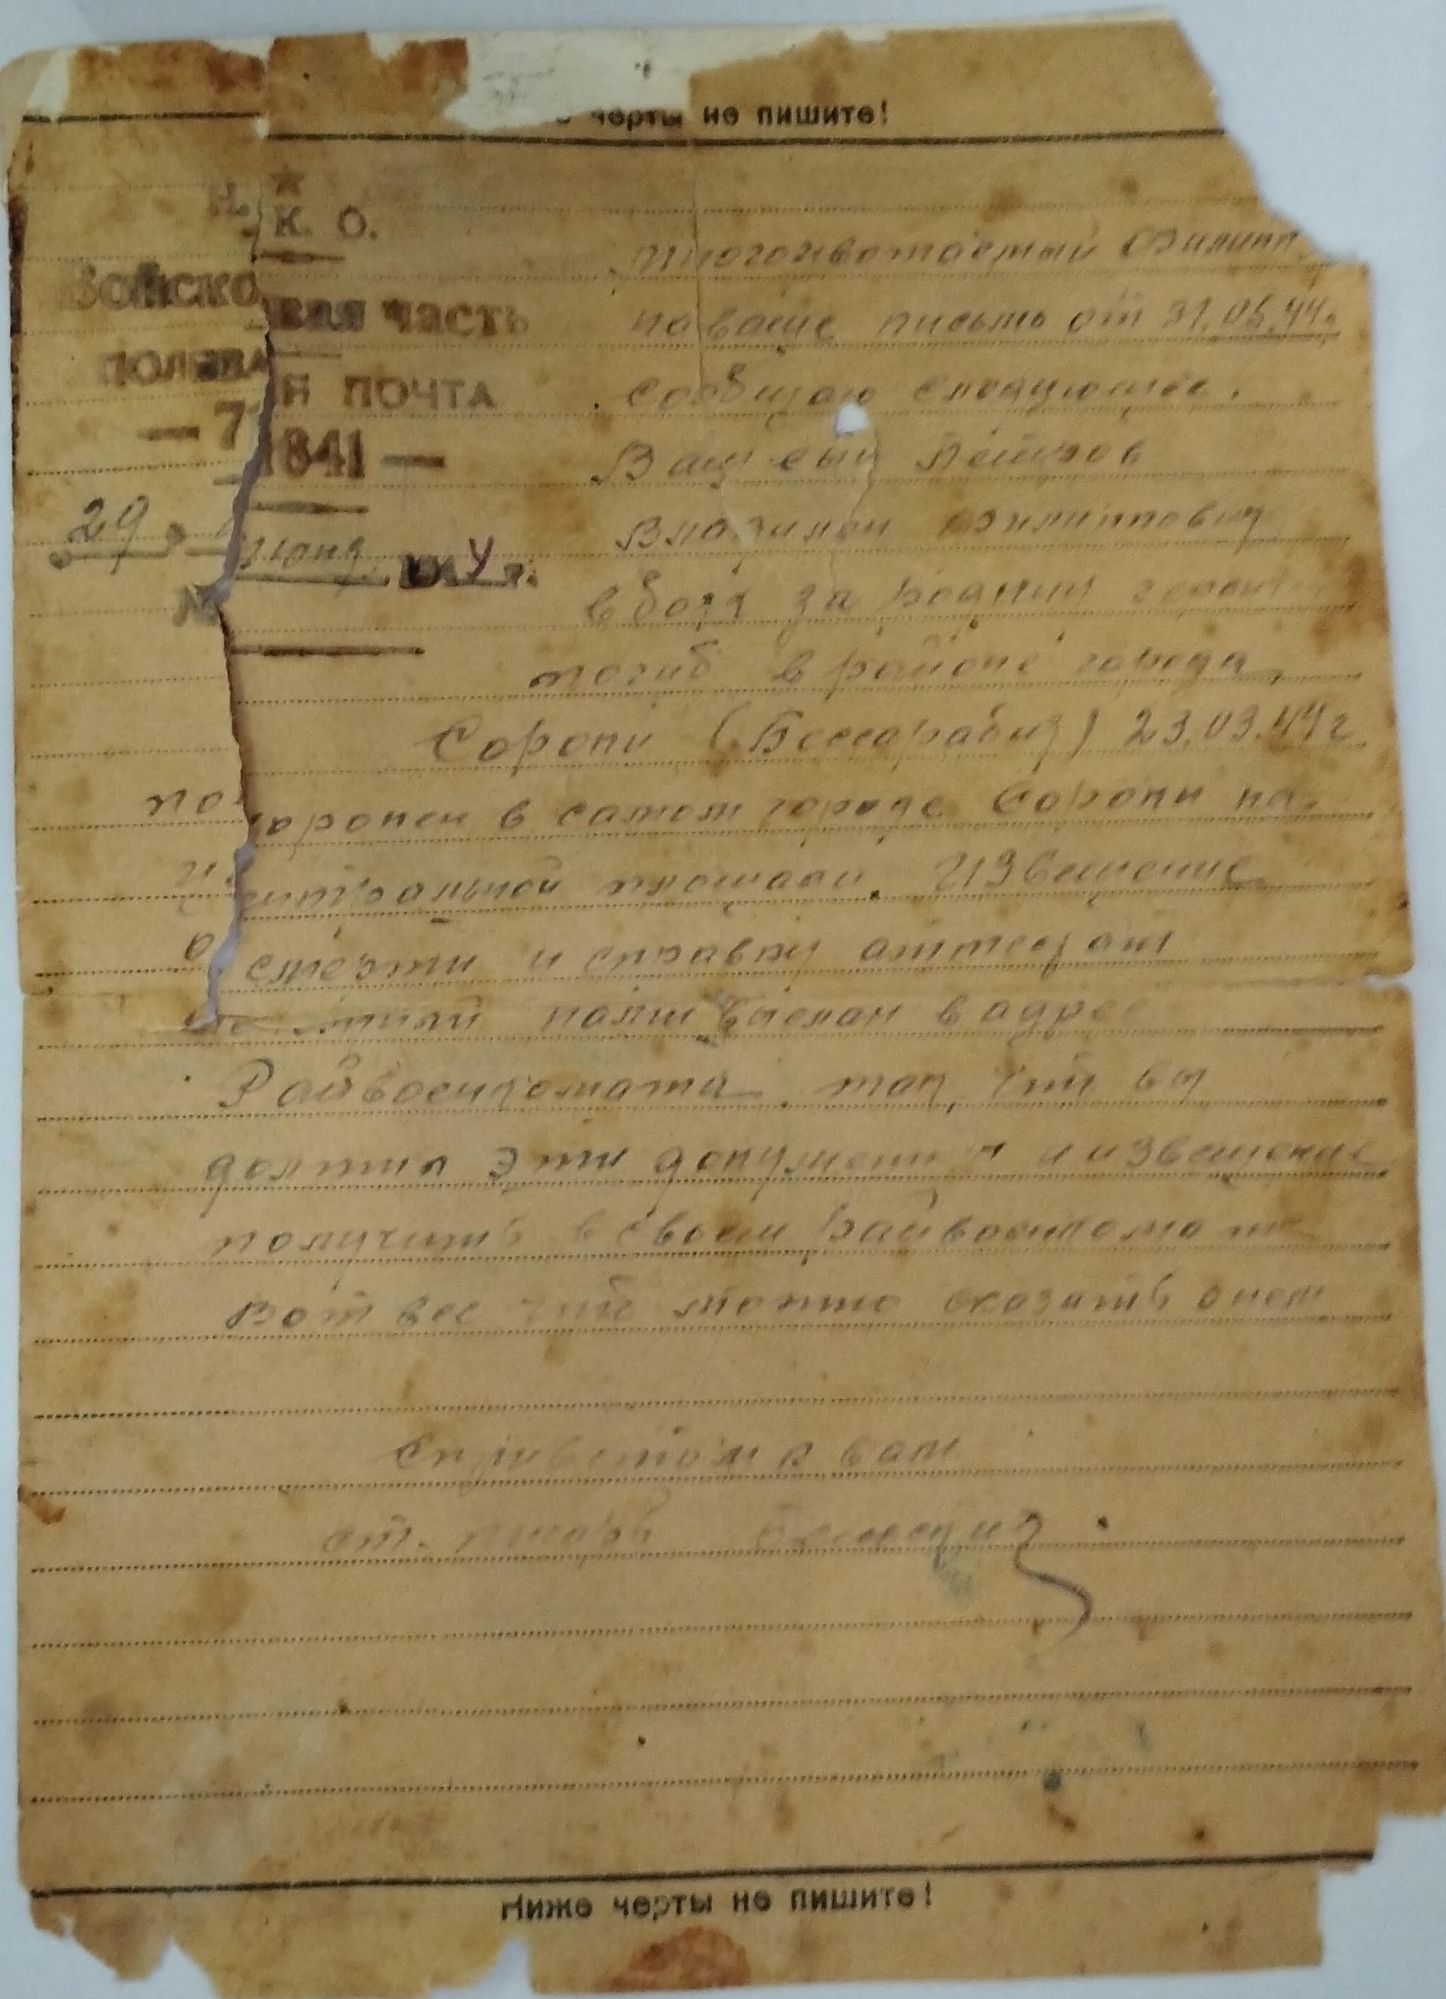 черты не пишите!
Н. К. О.
Войсковая часть
ПОЛЕВАЯ ПОЧТА
— 71841 —
29 Июня 1944 г.
№
Многоуважаемый Филипп
на ваше письмо от 31.05.44г.
сообщаю следующее.
Ваш сын Петров
Владимир Филиппович
в боях за родину героически
погиб в районе города
Сороки (Бессарабия) 23.03.44г
похоронен в самом городе Сороки на
центральной площади. Извещение
о смерти и справку аттестат
нами выслан в адрес
Райвоенкомата. так, что вы
должны эти документы и извещение
получить в своем райвоенкомате
Вот все что можно сказать о нем
С приветом к вам
ст. писарь
Ниже черты не пишите!